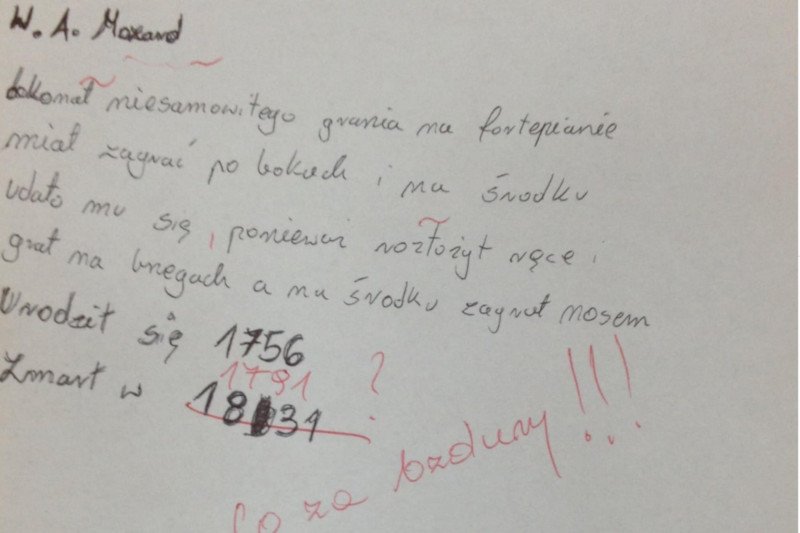 W. A. Mozand
dokonał niesamowitego grania na fortepianie
miał zagrać po bokach i na środku
udało mu się, ponieważ rozłożył ręce i
grał na bregach a na środku zagrał nosem
Urodził się 1756
1791 ?
Zmarł w 1831
Co za bzdury!!!